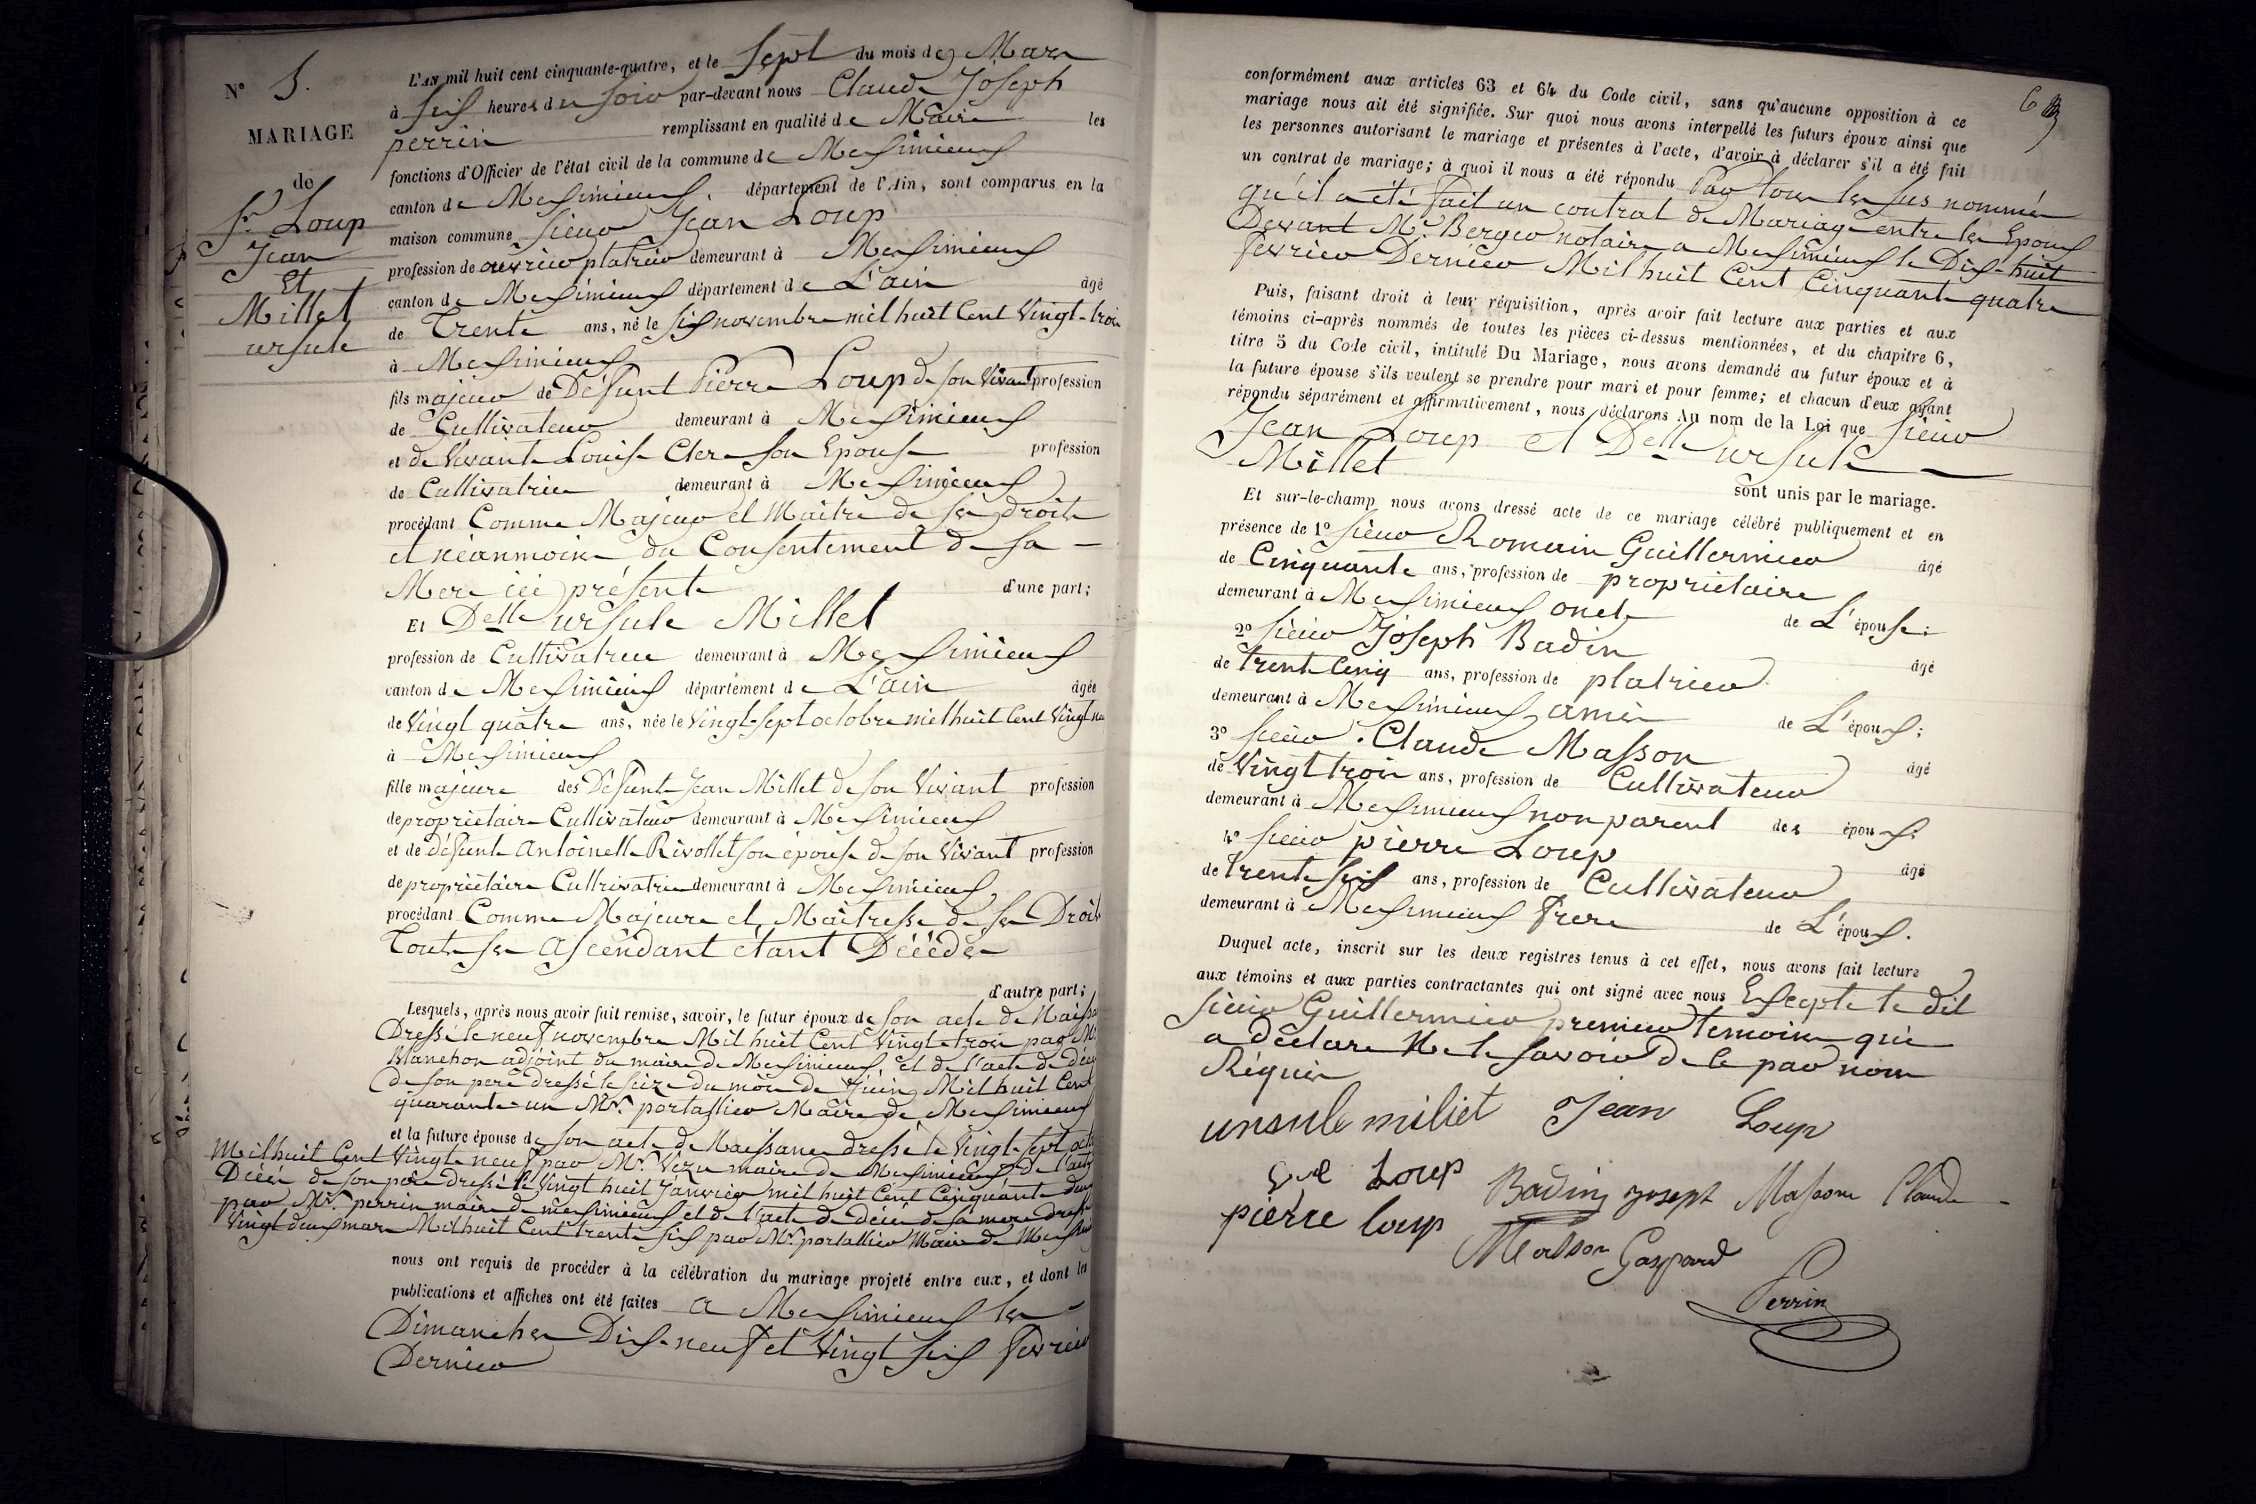 N° 5.
MARIAGE
de
Sr. Loup
Jean
Et
Millet
ursule
L'AN mil huit cent cinquante-quatre, et le Sept du mois de Mars
à six heures du soir par-devant nous Claude Joseph
perrin remplissant en qualité de Maire les
fonctions d'Officier de l'état civil de la commune de Messimieux
canton de Messimieux, département de l'Ain, sont comparus en la
maison commune sieur Jean Loup
profession de ouvrier platrier demeurant à Messimieux
canton de Messimieux département de L'ain âgé
de Trente ans, né le six novembre mil huit Cent Vingt-trois
à Messimieux
fils majeur de Defunt Pierre Loup de son vivant profession
de Cultivateur demeurant à Messimieux
et de Vivante Louise Clere son Epouse profession
de Cultivatrice demeurant à Messimieux
procédant Comme Majeur et Maitre de ses droits
et néanmoins du Consentement de sa
Mere ici présente d'une part;
Et Delle ursule Millet
profession de Cultivatrice demeurant à Messimieux
canton de Messimieux département de L'ain âgée
de Vingt quatre ans, née le Vingt-sept octobre mil huit Cent Vingt neuf
à Messimieux
fille majeure des Defunt Jean Millet de son Vivant profession
de proprietaire Cultivateur demeurant à Messimieux
et de défunte Antoinette Rivollet son épouse de son Vivant profession
de proprietaire Cultivatrice demeurant à Messimieux
procédant Comme Majeure et Maitresse de ses Droits
Tout ses Ascendant étant Décédés
d'autre part;
Lesquels, après nous avoir fait remise, savoir, le futur époux de son acte de Naissance
Dressé le neuf novembre Mil huit Cent Vingt-trois par Mr
Blanchon adjoint du maire de Messimieux, et de l'acte de décès
de son pere dressé le seize du mois de Juin Mil huit Cent
quarante-un Mr. portallier Maire de Messimieux
et la future épouse de son acte de Naissance dressé le Vingt-sept octobre
Mil huit Cent Vingt neuf par Mr. Vezu maire de Messimieux de l'acte
Décès de son père dressé le Vingt huit Janvier mil huit Cent Cinquante deux
par Mr. perrin maire de messimieux et de l'acte de Décès de sa mere dressé
Vingt deux mars Mil huit Cent trente six par Mr. portallier Maire de Messimieux
nous ont requis de procéder à la célébration du mariage projeté entre eux, et dont les
publications et affiches ont été faites a Messimieux les
Dimanches Dix-neuf et Vingt six fevrier
Dernier
conformément aux articles 63 et 64 du Code civil, sans qu'aucune opposition à ce
mariage nous ait été signifiée. Sur quoi nous avons interpellé les futurs époux ainsi que
les personnes autorisant le mariage et présentes à l'acte, d'avoir à déclarer s'il a été fait
un contrat de mariage; à quoi il nous a été répondu Par tous les sus nommés
qu'il a été fait un contrat de Mariage entre les Epoux
Devant Mr. Berger notaire a Messimieux le Dix-huit
fevrier Dernier Mil huit Cent Cinquante quatre
Puis, faisant droit à leur réquisition, après avoir fait lecture aux parties et aux
témoins ci-après nommés de toutes les pièces ci-dessus mentionnées, et du chapitre 6,
titre 5 du Code civil, intitulé Du Mariage, nous avons demandé au futur époux et à
la future épouse s'ils veulent se prendre pour mari et pour femme; et chacun d'eux ayant
répondu séparément et affirmativement, nous déclarons Au nom de la Loi que sieur
Jean Loup et Delle ursule
Millet
sont unis par le mariage.
Et sur-le-champ nous avons dressé acte de ce mariage célébré publiquement et en
présence de 1° sieur Romain Guillermier âgé
de Cinquante ans, profession de proprietaire
demeurant à Messimieux oncle de L'épouse;
2° sieur Joseph Badin âgé
de trent Cinq ans, profession de platrier
demeurant à Messimieux, amis de L'époux;
3° sieur Claude Masson âgé
de Vingt trois ans, profession de Cultivateur
demeurant à Messimieux non parent des époux;
4° sieur pierre Loup âgé
de trente six ans, profession de Cultivateur
demeurant à Messimieux frere de L'époux.
Duquel acte, inscrit sur les deux registres tenus à cet effet, nous avons fait lecture
aux témoins et aux parties contractantes qui ont signé avec nous Excepte le dit
sieur Guillermier premier temoin qui
a déclaré Ne le savoir de ce par nous
Réquis
unsule miliet Jean Loup
Loup Badin josept Masson Claude
pierre loup
Masson Gaspard
Perrin